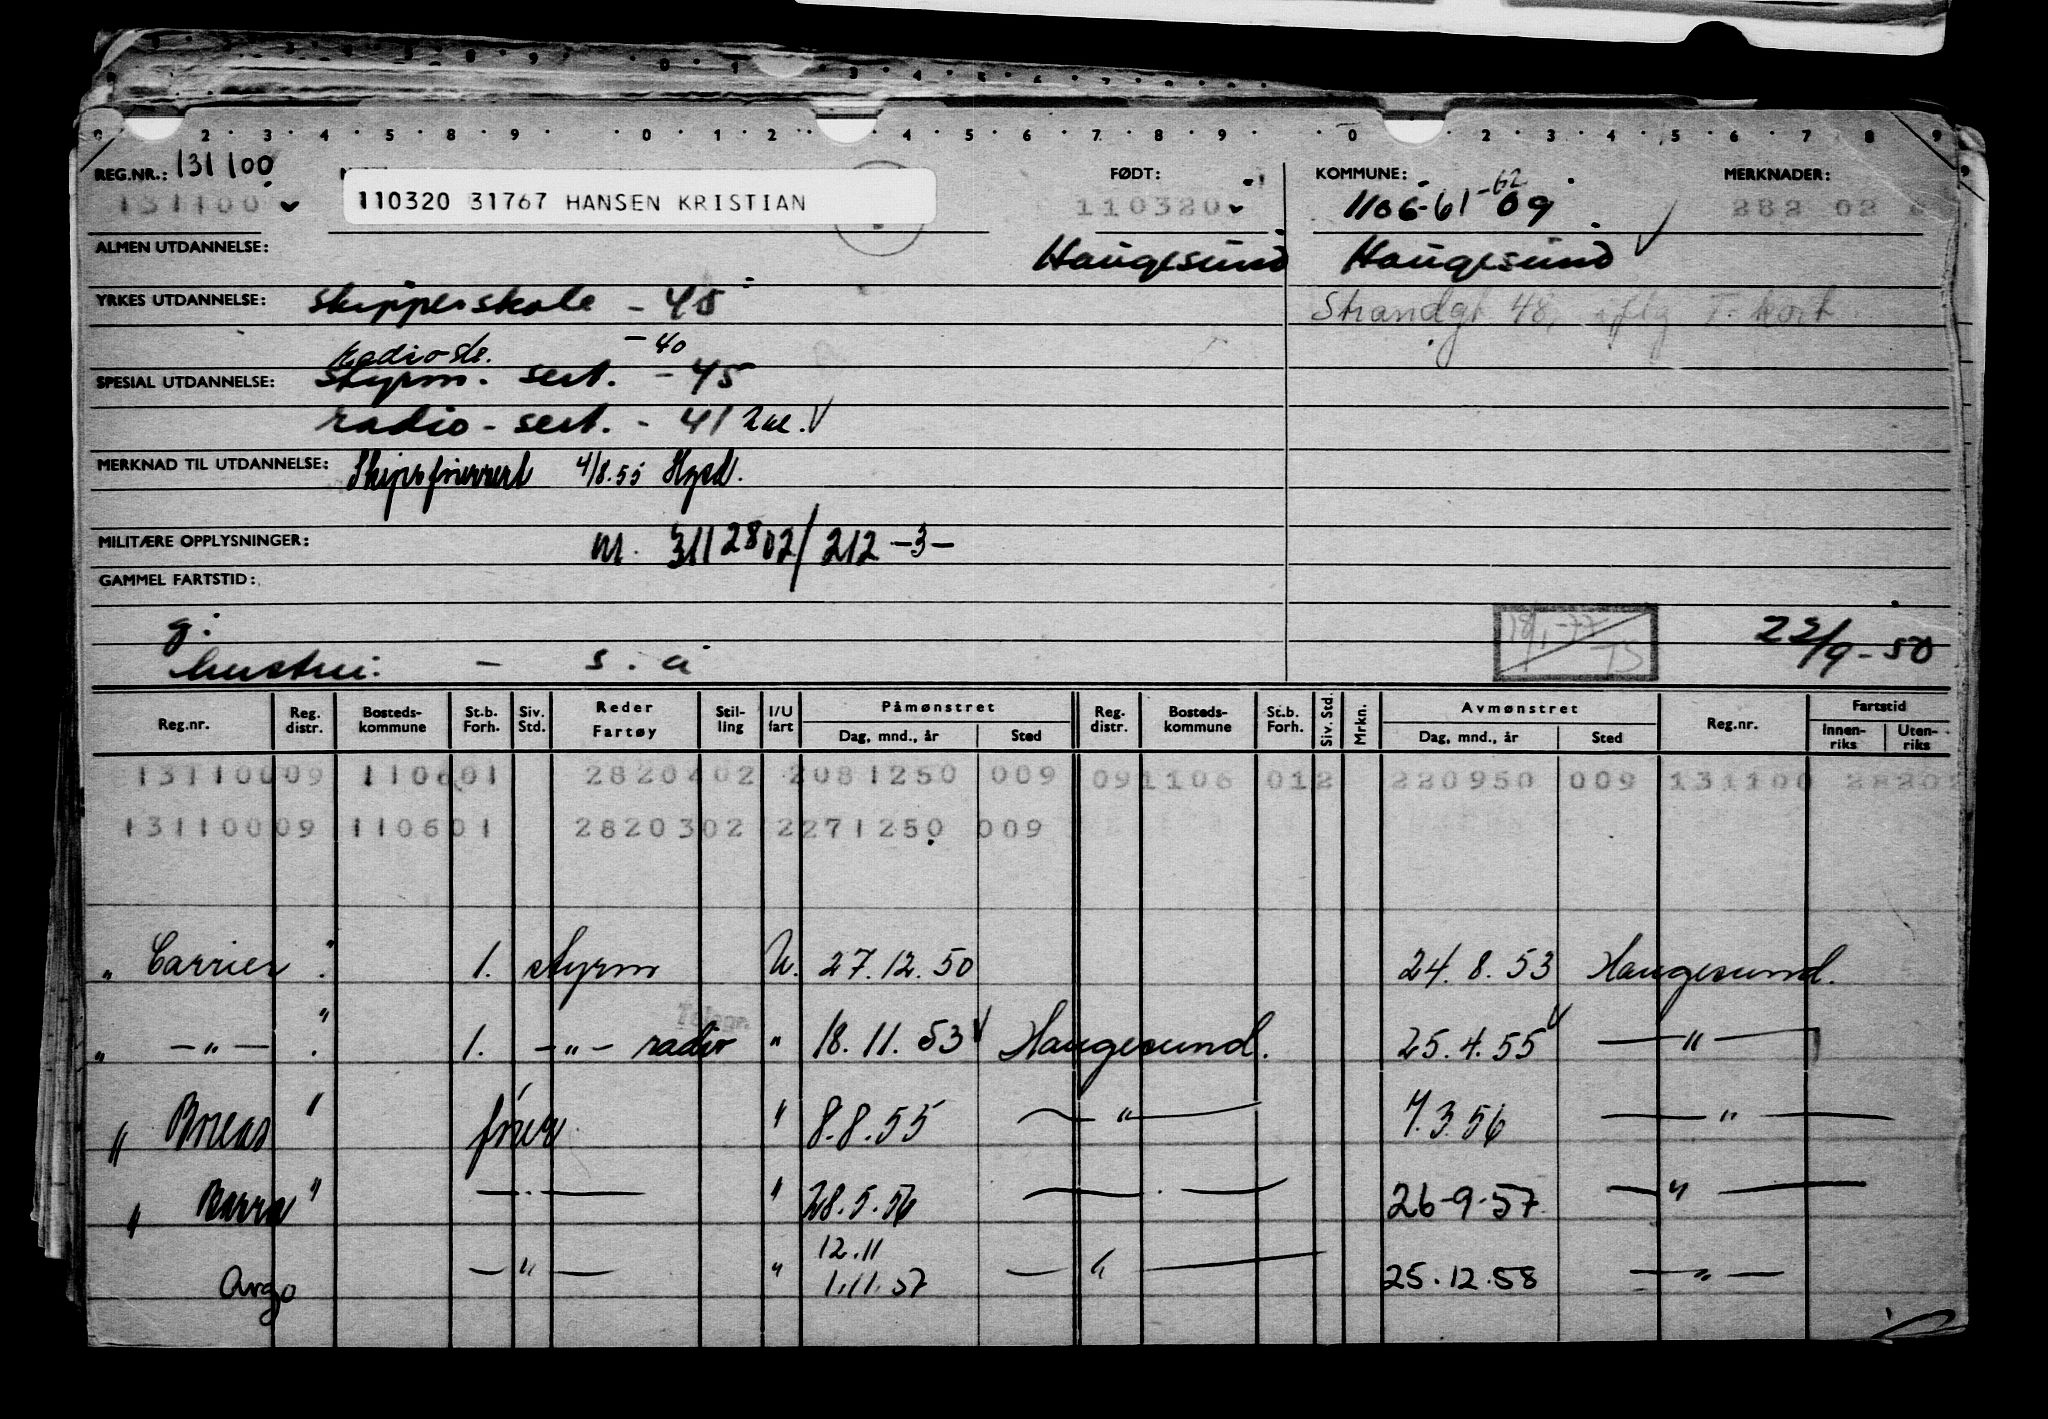 REG.NR.: 131100
131100
110320 31767 HANSEN KRISTIAN
FØDT:
110320
KOMMUNE: -62
1106-61-09
MERKNADER:
282 02
ALMEN UTDANNELSE:
Haugesund Haugesund
YRKES UTDANNELSE: skipperskole - 45
Strandgt 48,
radiosk. - 40
SPESIAL UTDANNELSE: styrm. sert. - 45
radio - sert. - 41 2 kl.
MERKNAD TIL UTDANNELSE: 4/8.55 Hgsd.
MILITÆRE OPPLYSNINGER: M. 3112802/212 -3-
GAMMEL FARTSTID:
g.
hustru. - s. å
18/1-77
TS
22/9-50
Reg.nr. Reg. distr. Bosteds-kommune St.b. Forh. Siv. Std. Reder Fartøy Stil-ling I/U fart Påmønstret Dag, mnd., år Sted Reg. distr. Bosteds-kommune St.b. Forh. Siv. Std. Mrkn. Avmønstret Dag, mnd., år Sted Reg.nr. Fartstid Innen-riks Uten-riks
13110009 110601 2820202 2081250 009 091106 012 220950 009 131100 28202
13110009 110601 2820302 2271250 009
" Carrier " 1. styrm U. 27.12.50 24.8.53 Haugesund.
Telegr.
" -"- " 1. -"- radio " 18.11.53 Haugesund. 25.4.55 -"-
" Boreas " " 8.8.55 -"- 7.3.56 -"-
" Barra " -"- " 28.5.56 -"- 26-9-57 -"-
12.11
Argo -"- " 1.11.57 -"- 25.12.58 -"-